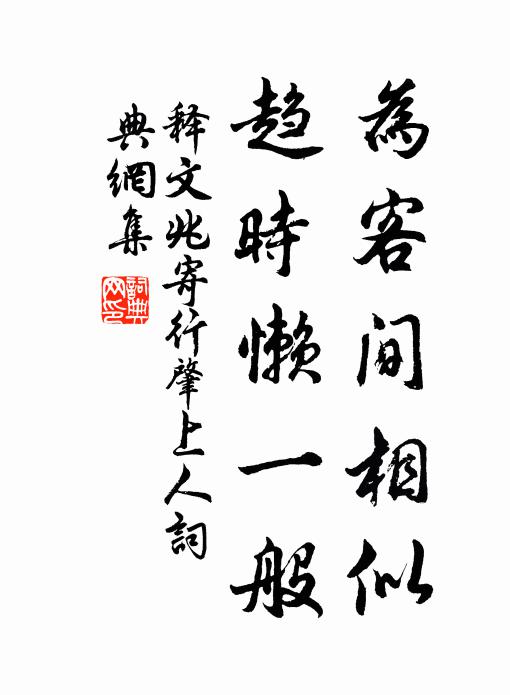 為客間相似
趋時懒一般
释文兆寄行肇上人詞
典網集
詞典
网印